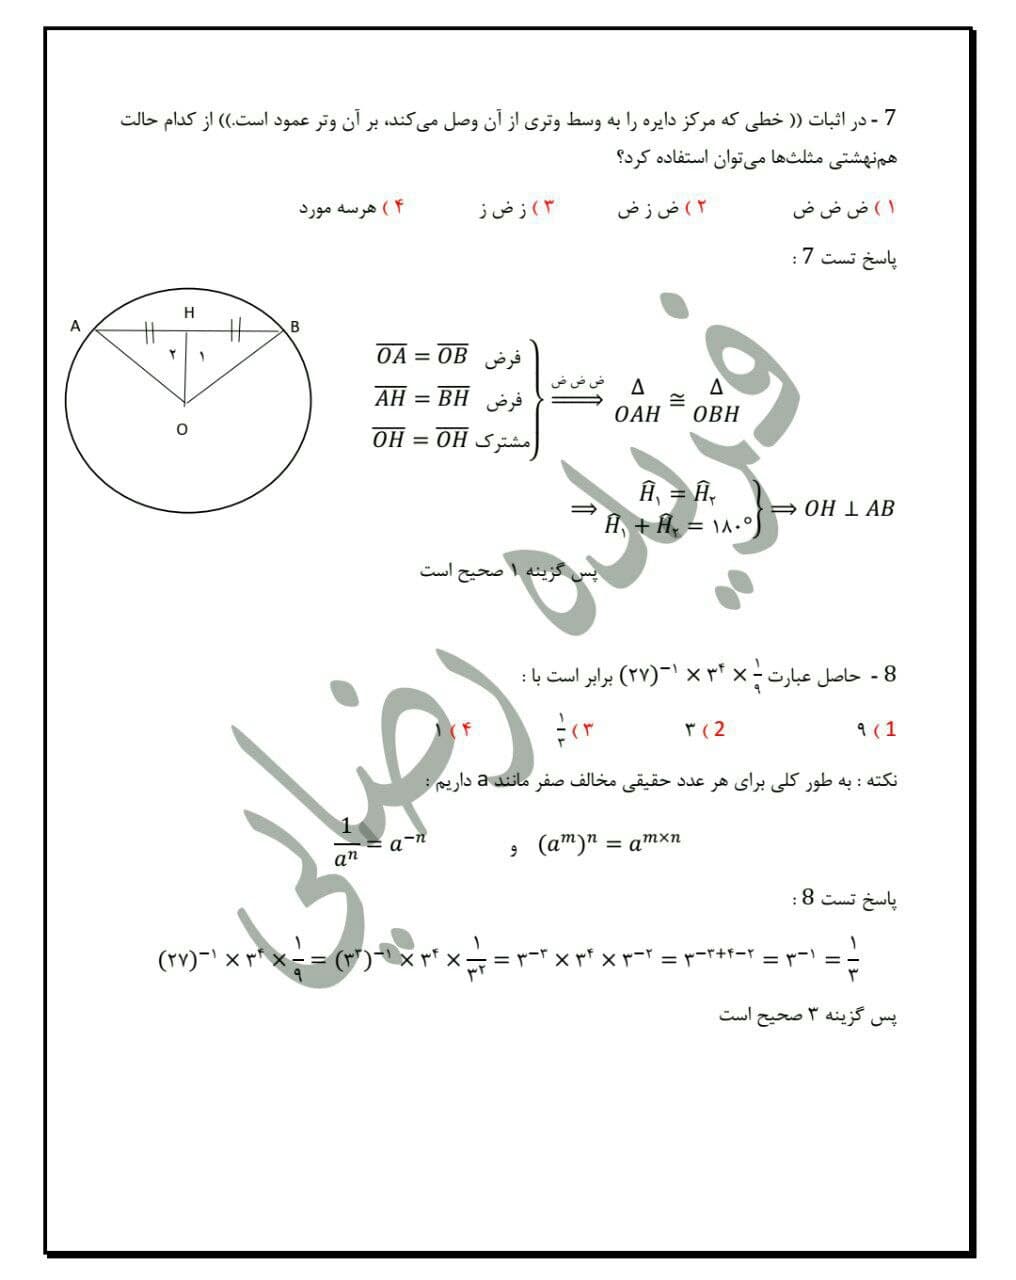 7 - در اثبات (( خطی که مرکز دایره را به وسط وتری از آن وصل می‌کند، بر آن وتر عمود است.)) از کدام حالت
هم‌نهشتی مثلث‌ها می‌توان استفاده کرد؟
۱ ) ض ض ض   ۲ ) ض ز ض   ۳ ) ز ض ز   ۴ ) هرسه مورد
پاسخ تست 7 :
A H B
۲ ۱
O
OA = OB فرض
AH = BH فرض
OH = OH مشترک
ض ض ض ⟹ Δ OAH ≅ Δ OBH
⟹ Ĥ۱ = Ĥ۲
Ĥ۱ + Ĥ۲ = ۱۸۰° } ⟹ OH ⊥ AB
پس گزینه ۱ صحیح است
8 - حاصل عبارت (۲۷)⁻¹ × ۳⁴ × ۱/۹ برابر است با :
1 ) ۹   2 ) ۳   ۳ ) ۱/۳   ۴ ) ۱
نکته : به طور کلی برای هر عدد حقیقی مخالف صفر مانند a داریم :
1/aⁿ = a⁻ⁿ و (aᵐ)ⁿ = aᵐ×ⁿ
پاسخ تست 8 :
(۲۷)⁻¹ × ۳⁴ × ۱/۹ = (۳³)⁻¹ × ۳⁴ × ۱/۳² = ۳⁻³ × ۳⁴ × ۳⁻² = ۳⁻³⁺⁴⁻² = ۳⁻¹ = ۱/۳
پس گزینه ۳ صحیح است
فریده رضایی